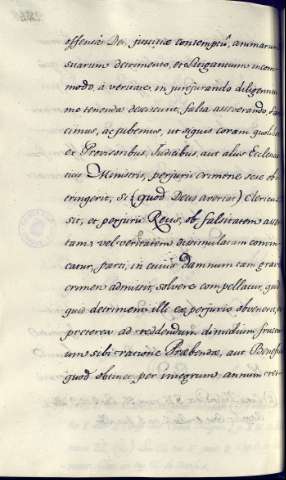 offensâ Dei, justitiæ contemptû, animarum
suarum detrimento, et litigantium incom
modo, à veritate, in jurejurando diligentius
mo tenenda falsa asseverando,
cimus, ac jubemus, ut siquis coram
et Provisoribus, Judicibus, aut aliis Ecclesias
ticis Ministris, perjurii crimine sese obs
tringerit, si (quod Deus avertat) Clericus
sit, et perjurii Reus, ob falsitatem asser
tam, vel veritatem dissimulatam convin
catur, parti, in cuius damnum tam grave
crimen admissit, solvere compellatur, quid
quid detrimenti illi ex perjurio obvenerit,
preterea ad reddendum dimidium fructu
um sibi ratione Præbendæ, aut Beneficii
quod obtinet per integrum annum